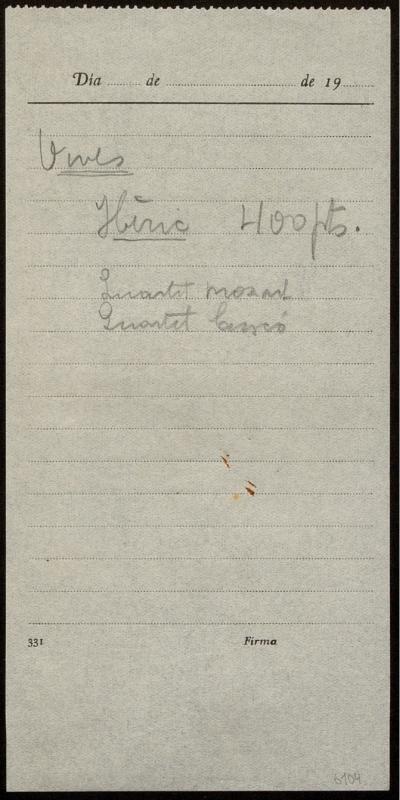 Día ........ de ................................ de 19........
Vives
Ibèric 400 pts.
Quartet Mozart
Quartet
331 Firma
6104